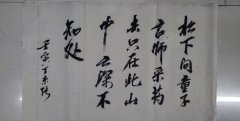 松下问童子
言师采药
去只在此山
中云深不
知处